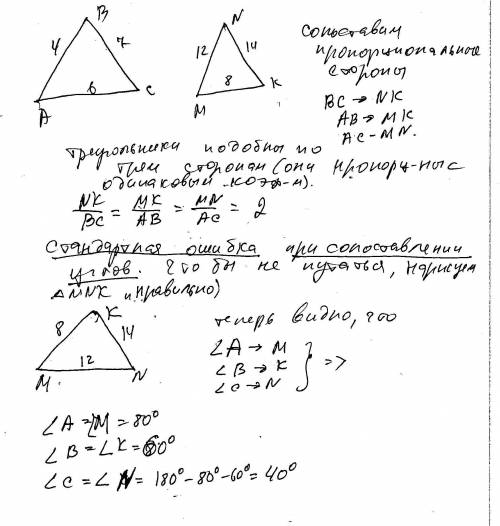 B
4
7
6
A
C
N
12
14
8
M
K
сопоставим
пропорциональные
стороны
BC → NK
AB → MK
AC - MN.
треугольники подобны по
трем сторонам (они пропорц-ны с
одинаковый коэф-м).
NK/BC = MK/AB = MN/AC = 2
Стандартная ошибка при сопоставлении
углов. Что бы не путаться, нарисуем
△MNK "правильно)
K
8
14
12
M
N
теперь видно, что
∠A → M
∠B → K
∠C → N
} =>
∠A = ∠M = 80°
∠B = ∠K = 60°
∠C = ∠N = 180° - 80° - 60° = 40°